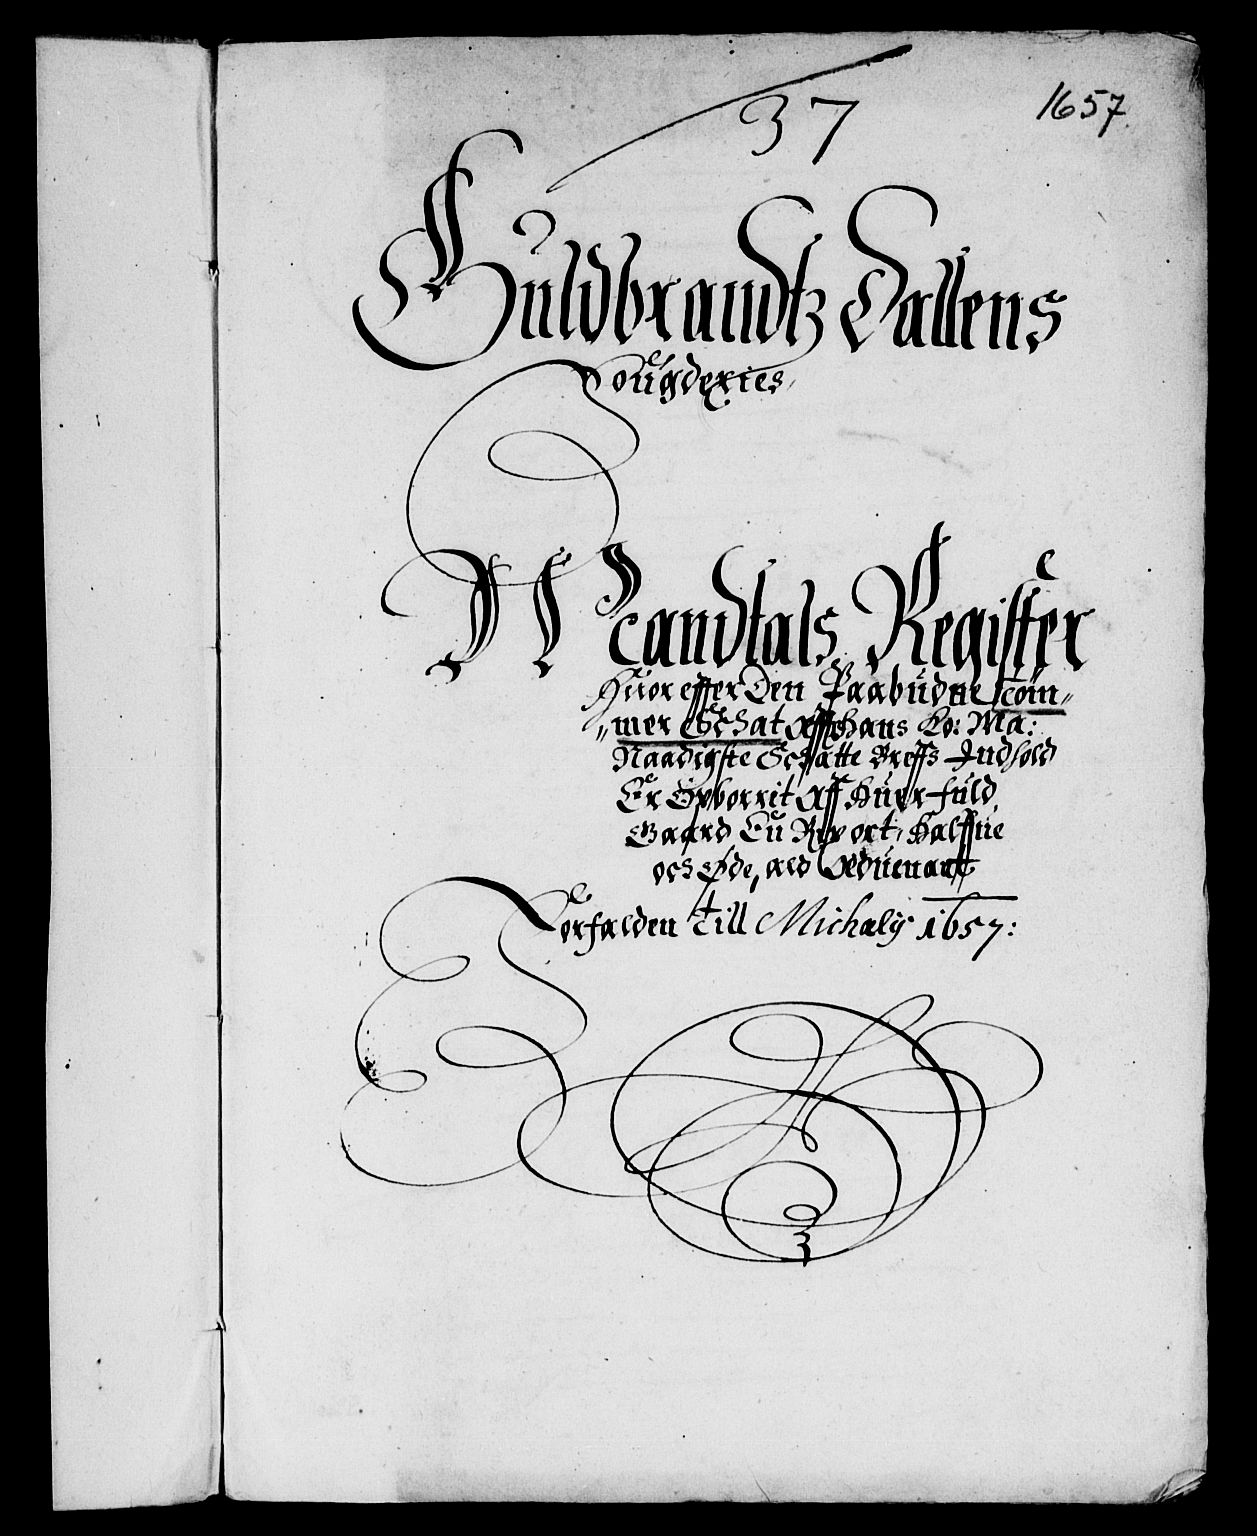 37
1657
Guldbrandtz Dallens
Fougderies
Mandtals Register
Huor effter Den Paabudne Tøm-
mer Schat Aff Hans Ko: Ma:
Naadigste Schatte Breffs Indhold
Er Opborrit Aff Huer fuld
Gaard En Rix ort, Halffue
och Øde, ald Aduenant
Forfalden Till Michaelij 1657: